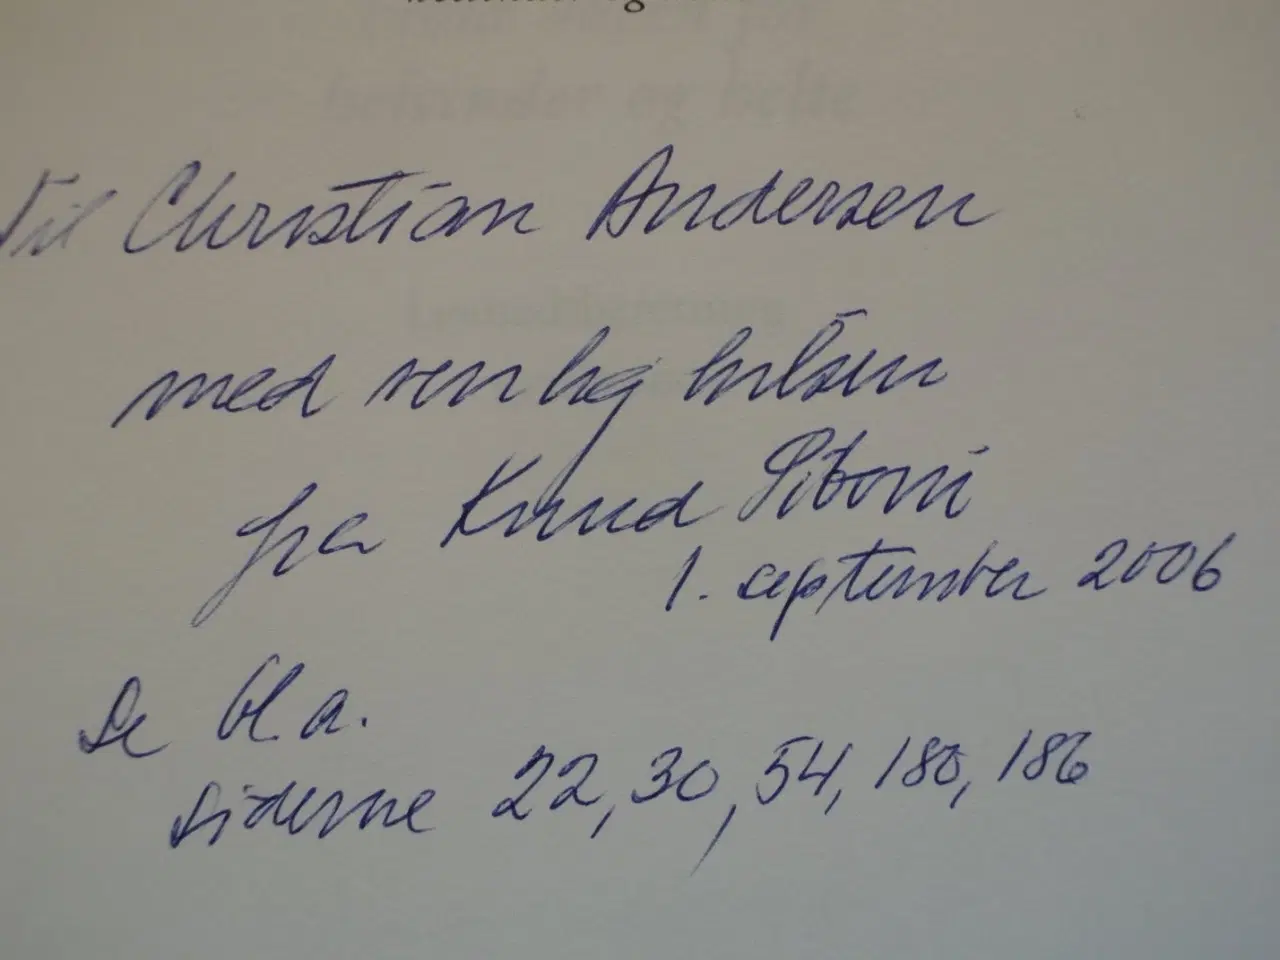 Til Christian Andersen
med venlig hilsen
fra Knud Siboni
1. september 2006
Se bl.a.
siderne 22, 30, 54, 180, 186